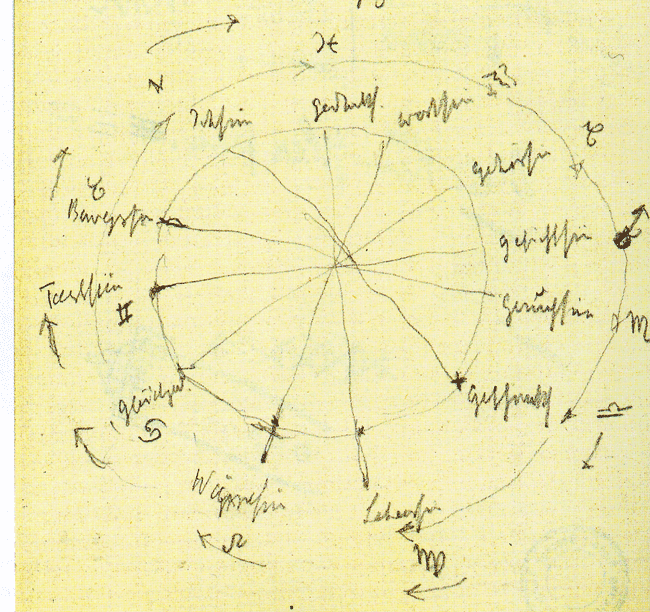 ♓
Ichsinn
Gedanks.
Wortsinn
♒
Gehörsinn
♑
♉
Bewegssin
Gesichtsinn
♐
Tastsinn
♊
Geruchsinn
♏
Gleichgew.
♋
Geschmacks
♎
Wärmesinn
Lebenssin
♌
♍